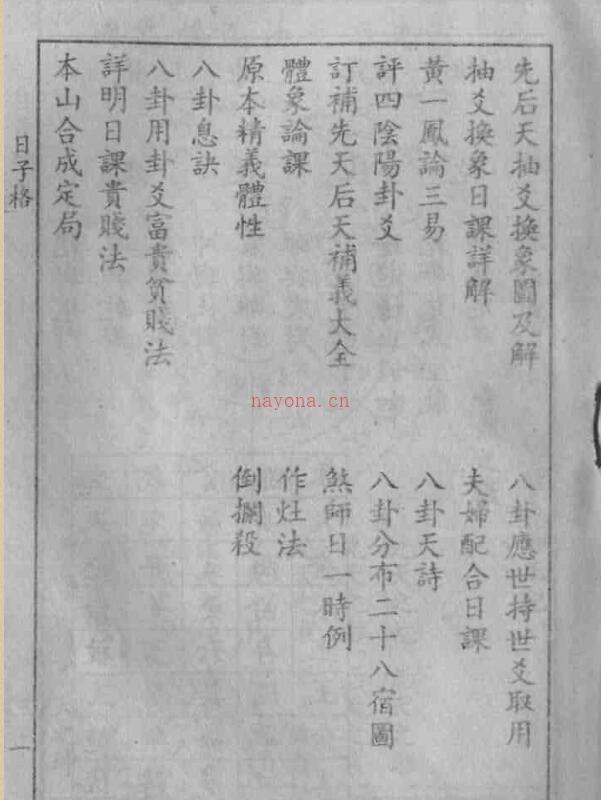 先后天抽爻換象圖及解
抽爻換象日課詳解
黃一鳳論三易
評四陰陽卦爻
訂補先天后天補義大全
體象論課
原本精義體性
八卦息訣
八卦用卦爻富貴貧賤法
詳明日課貴賤法
本山合成定局
八卦應世持世爻取用
夫婦配合日課
八卦天詩
八卦分布二十八宿圖
煞師日一時例
作灶法
倒攔殺
日子格
一
nayona.cn